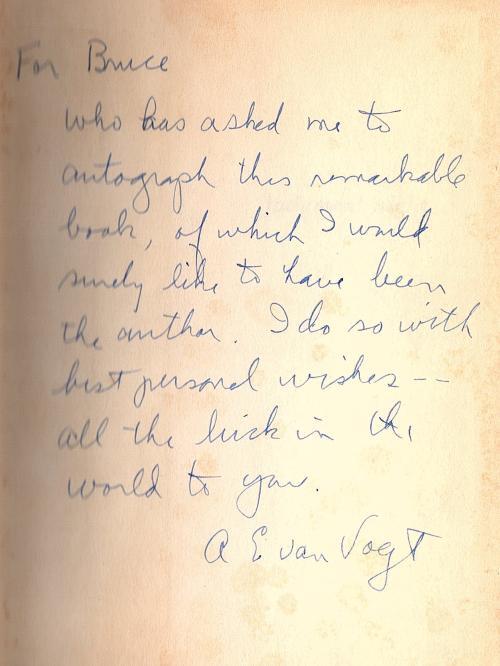 For Bruce
who has asked me to
autograph this remarkable
book, of which I would
surely like to have been
the author. I do so with
best personal wishes --
all the luck in the
world to you.
A E van Vogt